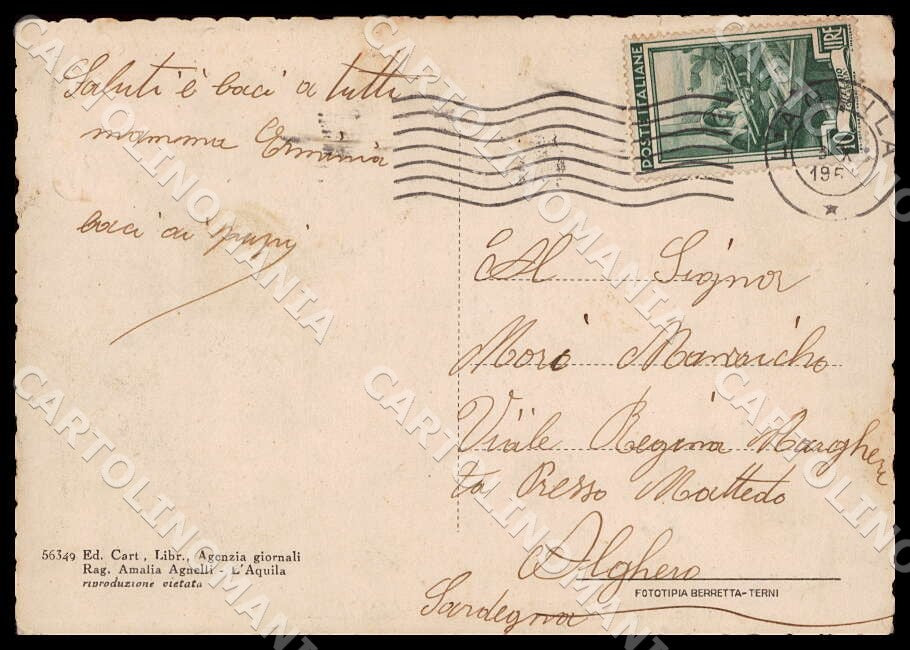 Saluti è baci a tutti
mamma Erminia
baci di papi
POSTE ITALIANE
LIRE
10
L'AQUILA
195
Al Signor
Mori
Viale Regina Margheri
ta Presso
Alghero
Sardegna
56349 Ed. Cart, Libr., Agenzia giornali
Rag. Amalia Agnelli - L'Aquila
riproduzione vietata
FOTOTIPIA BERRETTA-TERNI
CARTOLINOMANIA
CARTOLINOMANIA
CARTOLINOMANIA
CARTOLINOMANIA
CARTOLINOMANIA
CARTOLINOMANIA